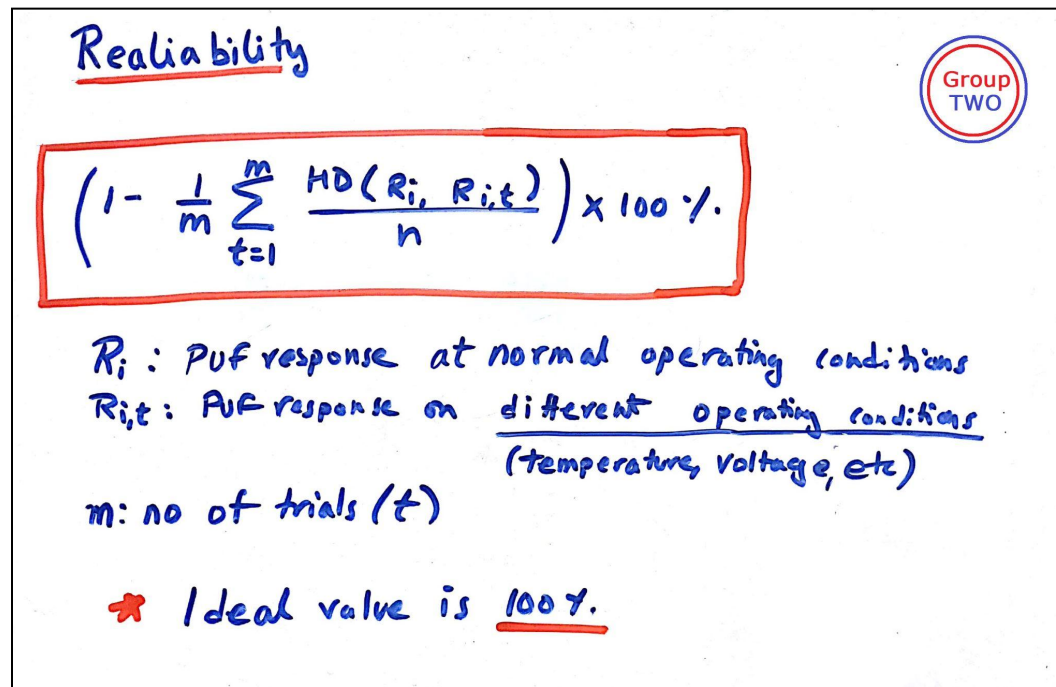 Realiability
Group
TWO
(1 - 1/m ∑_{t=1}^{m} HD(Ri, Ri,t)/n) × 100 %.
Ri : PUF response at normal operating conditions
Ri,t : PUF response on different operating conditions
(temperature, voltage, etc)
m: no of trials (t)
★ Ideal value is 100%.